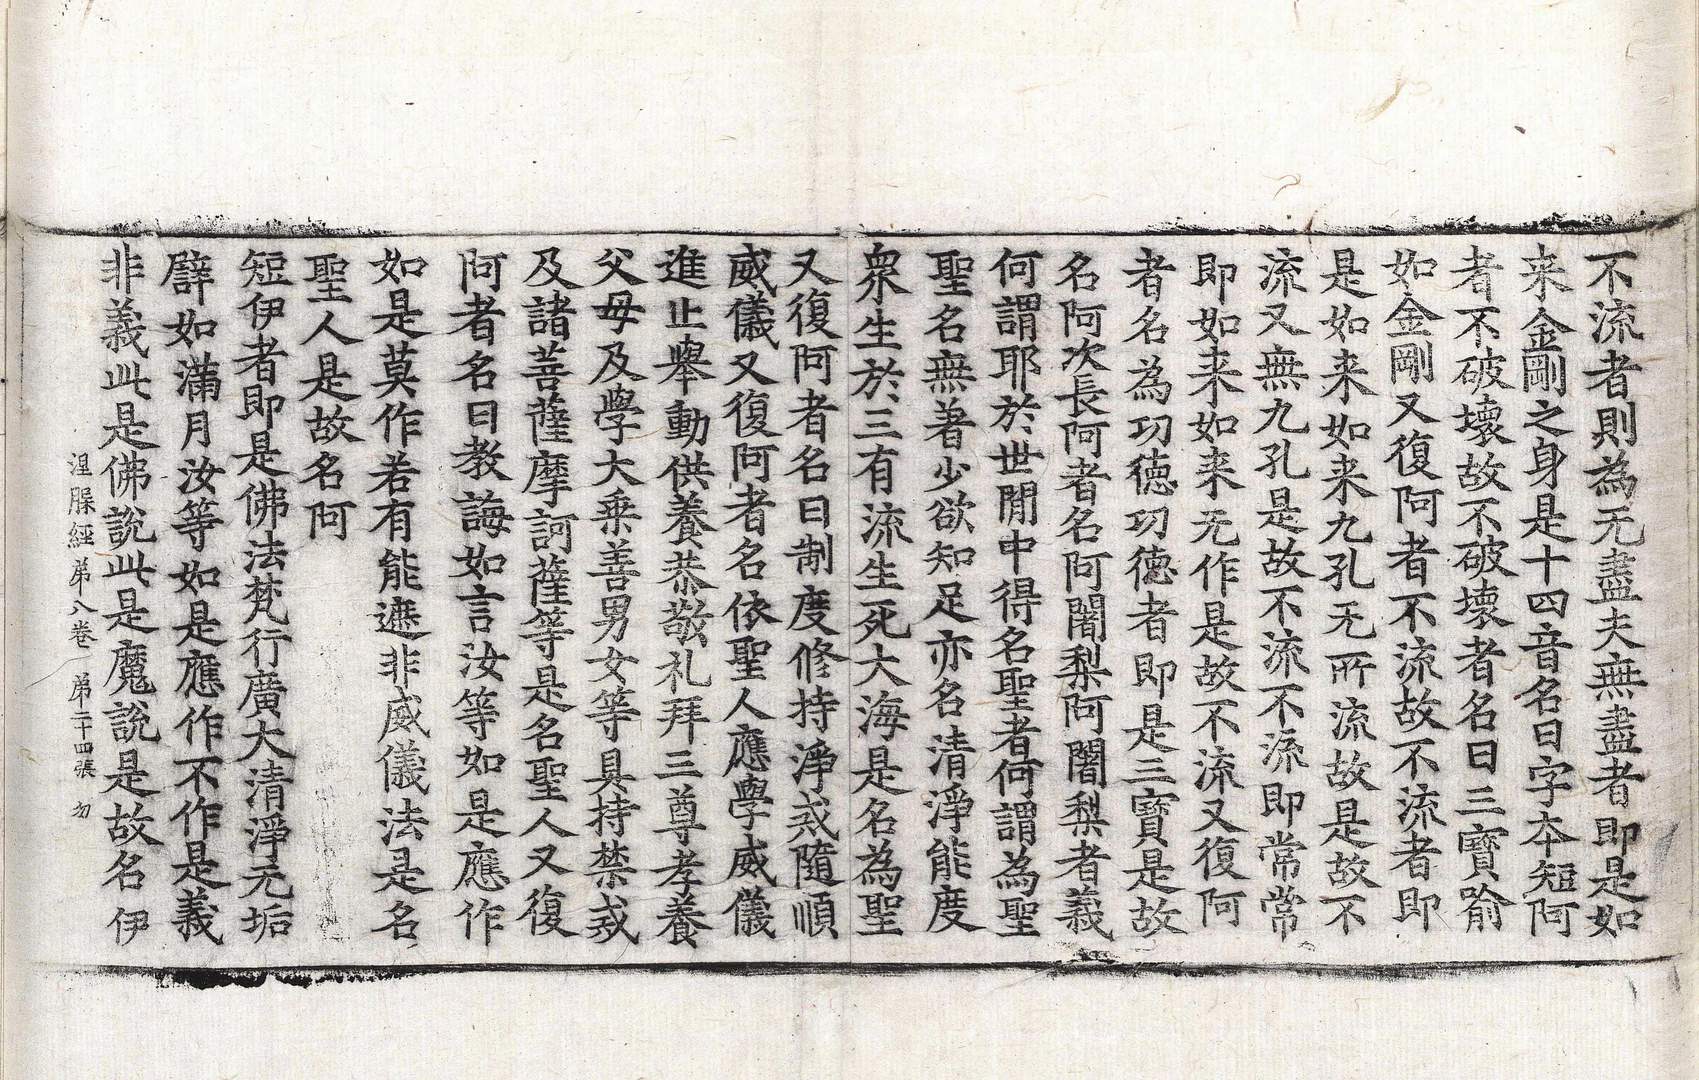 不流者則為无盡夫無盡者即是如
来金剛之身是十四音名曰字本短阿
者不破壞故不破壞者名曰三寶喻
如金剛又復阿者不流故不流者即
是如来如来九孔无所流故是故不
流又無九孔是故不流不流即常常
即如来如来无作是故不流又復阿
者名為功德功德者即是三寶是故
名阿次長阿者名阿闍梨阿闍梨者義
何謂耶於世間中得名聖者何謂為聖
聖名無著少欲知足亦名清淨能度
衆生於三有流生死大海是名為聖
又復阿者名曰制度修持淨戒隨順
威儀又復阿者名依聖人應學威儀
進止舉動供養恭敬礼拜三尊孝養
父母及學大乗善男女等具持禁戒
及諸菩薩摩訶薩等是名聖人又復
阿者名曰教誨如言汝等如是應作
如是莫作若有能遮非威儀法是名
聖人是故名阿
短伊者即是佛法梵行廣大清淨无垢
譬如滿月汝等如是應作不作是義
非義此是佛說此是魔說是故名伊
涅槃經第八卷 第二十四張 勿